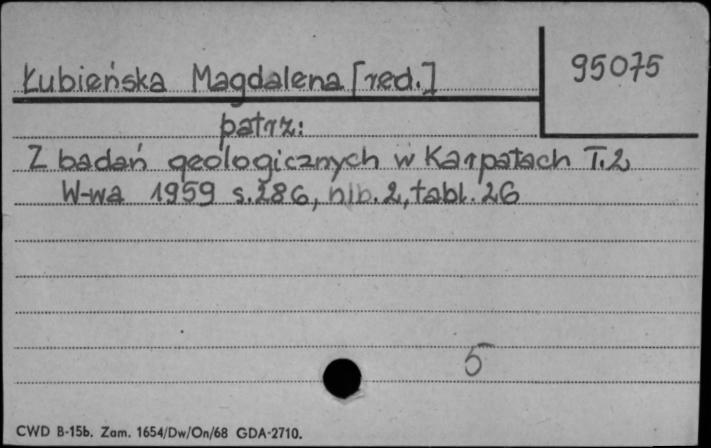 Łubieńska Magdalena [red.]
95075
patrz:
Z badań geologicznych w Karpatach T.2
W-wa 1959 s.286, nlb.2, tabl.26
5
CWD B-15b. Zam. 1654/Dw/On/68 GDA-2710.